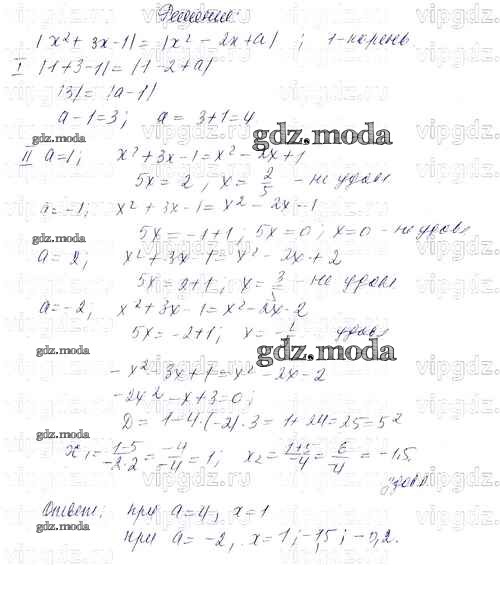 Решение:
|x² + 3x - 1| = |x² - 2x + a| ; 1 - корень.
I |1 + 3 - 1| = |1 - 2 + a|
|3| = |a - 1|
a - 1 = 3; a = 3 + 1 = 4
gdz.moda
gdz.moda
II a = 1; x² + 3x - 1 = x² - 2x + 1
5x = 2, x = 2/5 - не удовл
gdz.moda
a = -1; x² + 3x - 1 = x² - 2x - 1
5x = -1 + 1; 5x = 0; x = 0 - не удовл
gdz.moda
a = 2; x² + 3x - 1 = x² - 2x + 2
5x = 2 + 1; x = 3/5 - не удовл
a = -2, x² + 3x - 1 = x² - 2x - 2
5x = -2 + 1; x = - удовл
gdz.moda
gdz.moda
- x² 3x + 1 = x² - 2x - 2
-2x² - x + 3 = 0;
D = 1 - 4·(-2)·3 = 1 + 24 = 25 = 5²
gdz.moda
x₁ = 1-5/-2·2 = -4/-4 = 1; x₂ = 1+5/-4 = 6/-4 = -1,5
удовл
gdz.moda
Ответ: при a = 4, x = 1
при a = -2, x = 1; -1,5; -0,2.